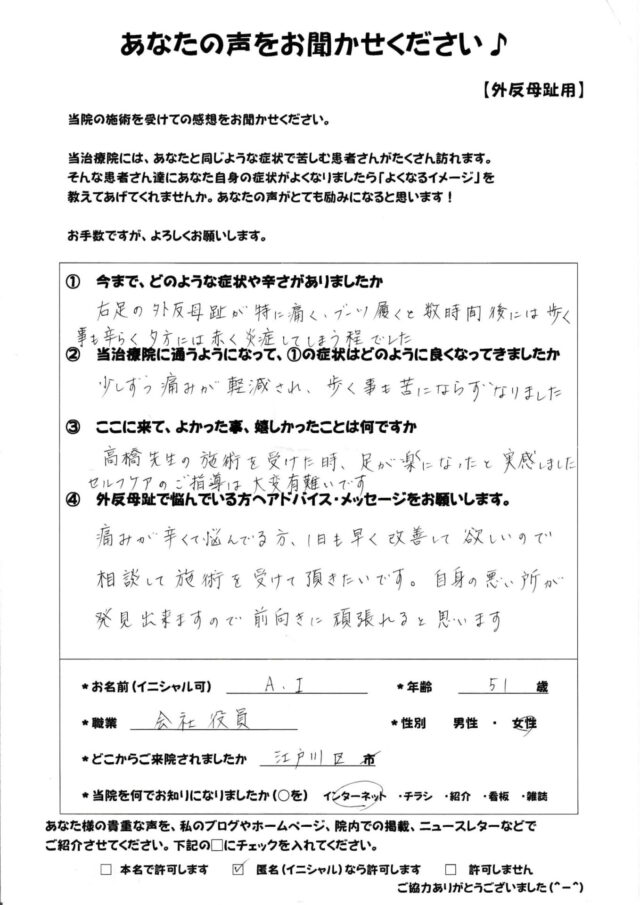 あなたの声をお聞かせください♪
【外反母趾用】
当院の施術を受けての感想をお聞かせください。
当治療院には、あなたと同じような症状で苦しむ患者さんがたくさん訪れます。
そんな患者さん達にあなた自身の症状がよくなりましたら「よくなるイメージ」を
教えてあげてくれませんか。あなたの声がとても励みになると思います！
お手数ですが、よろしくお願いします。
① 今まで、どのような症状や辛さがありましたか
右足の外反母趾が特に痛く、ブーツ履くと数時間後には歩く
事も辛らく夕方には赤く炎症してしまう程でした
② 当治療院に通うようになって、①の症状はどのように良くなってきましたか
少しずつ痛みが軽減され、歩く事も苦にならずなりました
③ ここに来て、よかった事、嬉しかったことは何ですか
高橋先生の施術を受けた時、足が楽になったと実感しました
セルフケアのご指導は大変有難いです
④ 外反母趾で悩んでいる方へアドバイス・メッセージをお願いします。
痛みが辛くて悩んでる方、1日も早く改善して欲しいので
相談して施術を受けて頂きたいです。自身の悪い所が
発見出来ますので前向きに頑張れると思います
*お名前（イニシャル可） A.I *年齢 51 歳
*職業 会社役員 *性別 男性 ・ 女性
*どこからご来院されましたか 江戸川区 市
*当院を何でお知りになりましたか（○を） インターネット ・チラシ ・紹介 ・看板 ・雑誌
あなた様の貴重な声を、私のブログやホームページ、院内での掲載、ニュースレターなどで
ご紹介させてください。下記の□にチェックを入れてください。
□ 本名で許可します ☑ 匿名（イニシャル）なら許可します □ 許可しません
ご協力ありがとうございました（^－^）